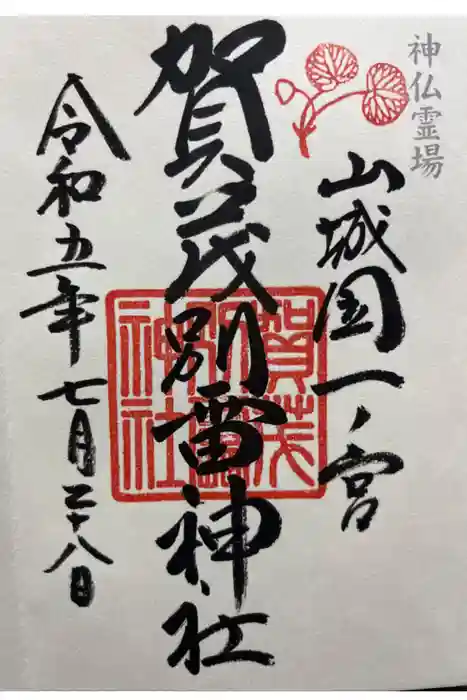 神仏霊場
山城国一ノ宮
賀茂別雷神社
賀茂
別雷
神社
令和五年七月二十八日